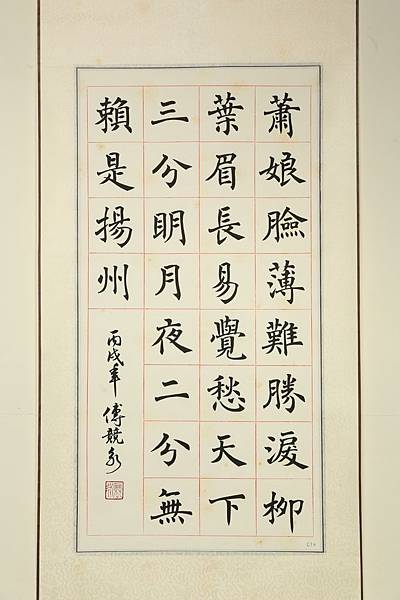 蕭娘臉薄難勝淚柳
葉眉長易覺愁天下
三分明月夜二分無
賴是揚州
丙戌年 傅競永